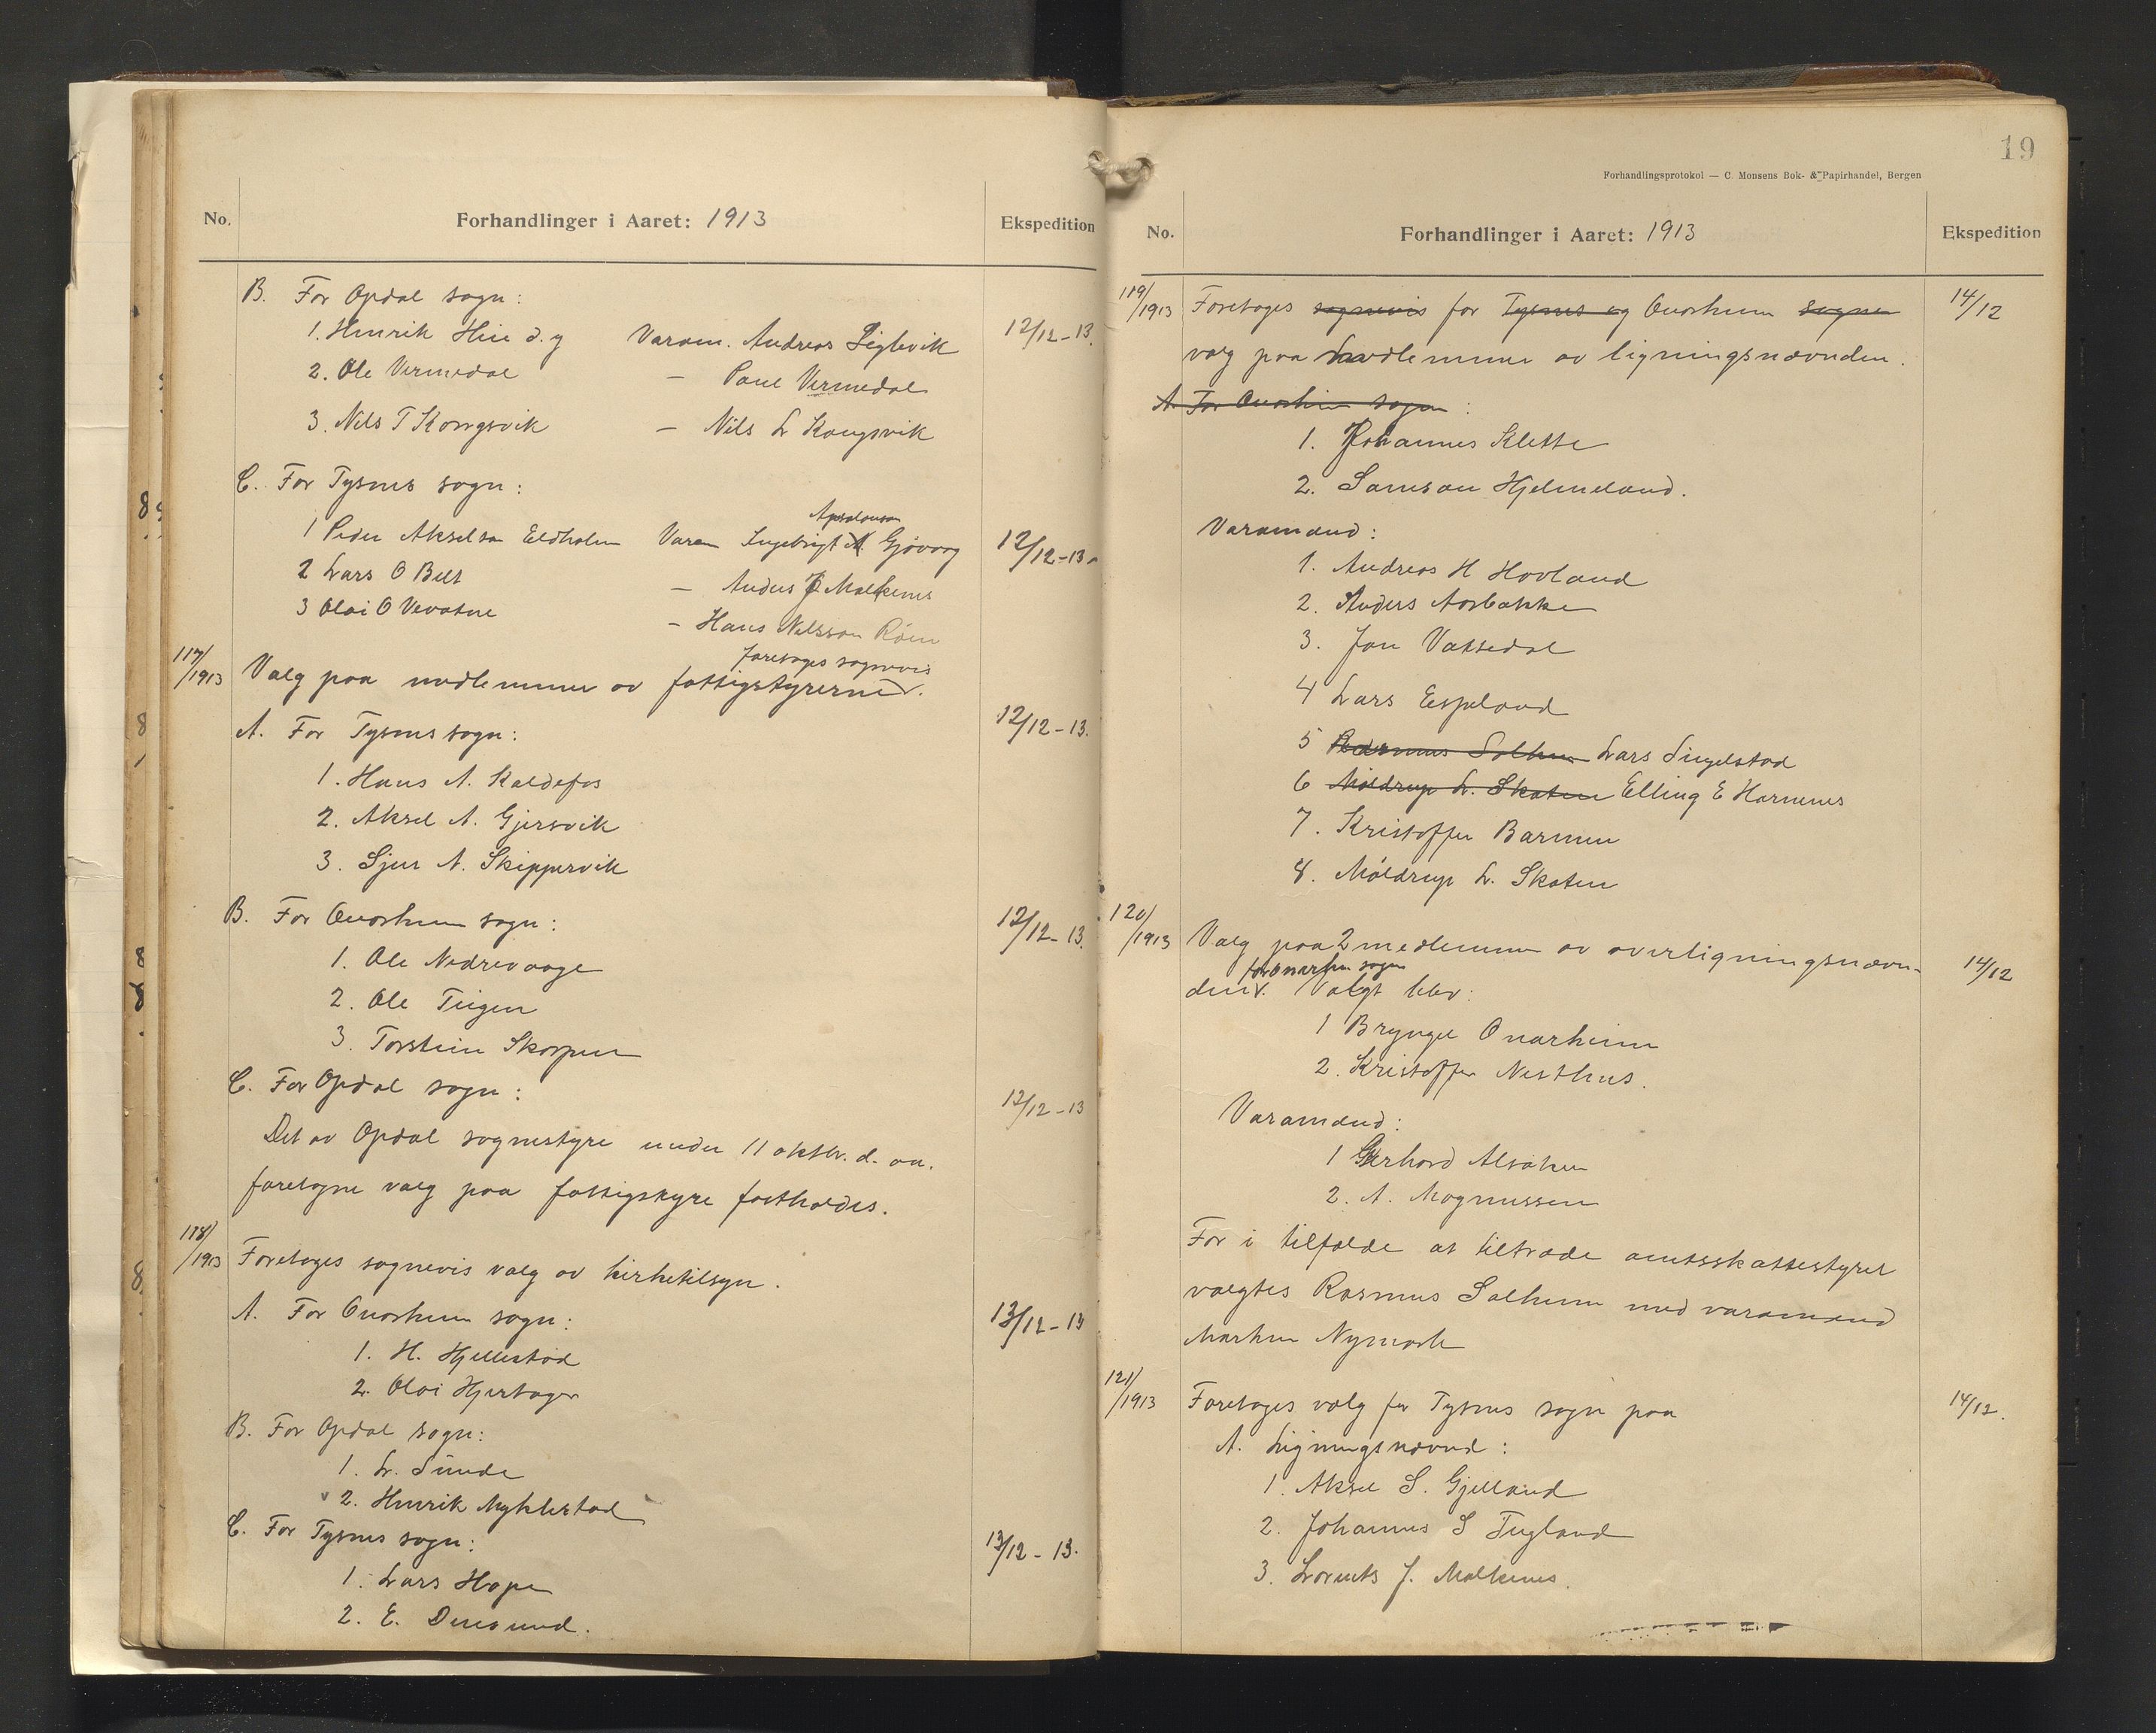 No.
Forhandlinger i Aaret: 1913
Ekspedition
B. For Opdal sogn:
1. Henrik Hiie d.y Varam. Andreas Siglevik 12/12-13.
2. Ole Vermedal — Paul Vermedal
3. Nils T Kongsvik — Nils L Kongsvik
C. For Tysnes sogn:
Apsalonson
1 Peder Akselson Eldholm Varam Ingebrigt A. Gjøvaag 12/12-13.
2 Lars O Belt — Anders J Malkenes
3 Olai O Vevatne — Hans Nilsson Røen
117/1913 Valg paa medlemmer av fattigstyrerne foretages sognevis.
A. For Tysnes sogn: 12/12-13.
1. Hans A. Kaldefos
2. Aksel A. Gjersvik
3. Sjur A. Skippervik
B. For Onarheim sogn: 12/12-13.
1. Ole Nedrevaage
2. Ole Teigen
3. Torstein Skorpen
C. For Opdal sogn: 12/12-13
Det av Opdal sognestyre under 11 oktbr. d. aa.
foretagne valg paa fattigstyre fastholdes.
118/1913 Foretages sognevis valg av kirketilsyn.
A. For Onarheim sogn: 13/12-13
1. H. Hjellestad
2. Olai Hjertager
B. For Opdal sogn:
1. L. Sunde
2. Henrik Myklestad
C. For Tysnes sogn: 13/12-13.
1. Lars Hope
2. E. Duesund.
19
Forhandlingsprotokol — C. Monsens Bok- & Papirhandel, Bergen
No.
Forhandlinger i Aaret: 1913
Ekspedition
119/1913 Foretages sognevis for Tysnes og Onarheim sogne 14/12
valg paa medlemmer av ligningsnævnden.
A. For Onarheim sogn:
1. Johannes Klette
2. Samson Hjelmeland.
Varamænd:
1. Andreas H Hovland
2. Anders Aarbakke
3. Jon Vaksedal
4 Lars Espeland
5 Rasmus Solheim Lars Singelstad
6 Møldrup L. Skaten Elling E Hornenes
7. Kristoffer Barmen
8. Møldrup L. Skaten
120/1913 Valg paa 2 medlemmer av overligningsnævn- 14/12
for Onarheim sogn
den. Valgt blev:
1 Bryngel Onarheim
2. Kristoffer Nesthus.
Varamænd:
1 Gerhard Alsaker
2. A. Magnussen
For i tilfælde at tiltræde amtsskattestyret
valgtes Rasmus Solheim med varamand
Markus Nymark
121/1913 Foretages valg for Tysnes sogn paa 14/12.
A. Ligningsnævnd:
1. Aksel S. Gjelland
2. Johannes S Tugland
3. Lorents J. Malkenes.